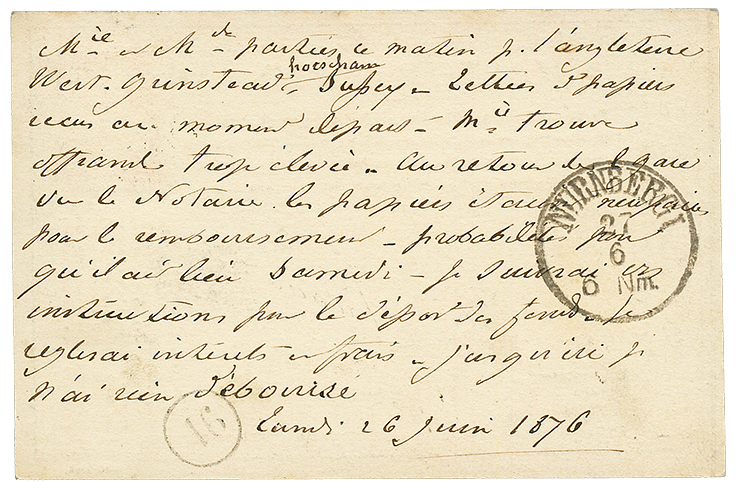 Mie et Mde parties ce matin p. l'angleterre
horsham
West-Grinstead - Sussex - Lettres & papiers
reçus au moment départ - Mie trouve
offrande trop élevée - Au retour de la gare
vu le Notaire les papiers étaient nécessaires
pour le remboursement - probabilités pour
qu'il ait lieu Samedi - je suivrai vos
instructions pour le dépôt des fonds - Je
reglerai intérêts et frais - jusqu'ici je
n'ai rien déboursé
Lundi 26 Juin 1876
NÜRNBERG I
27
6
6 Nm.
16